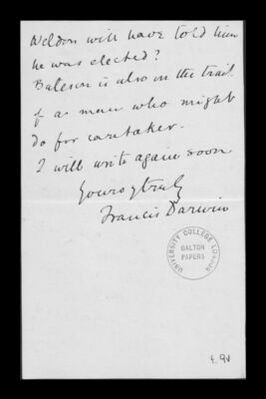 Weldon will have told him
he was elected?
Bateson is also on the trail
of a man who might
do for caretaker.
I will write again soon
Yours truly
Francis Darwin
UNIVERSITY COLLEGE LONDON
GALTON
PAPERS